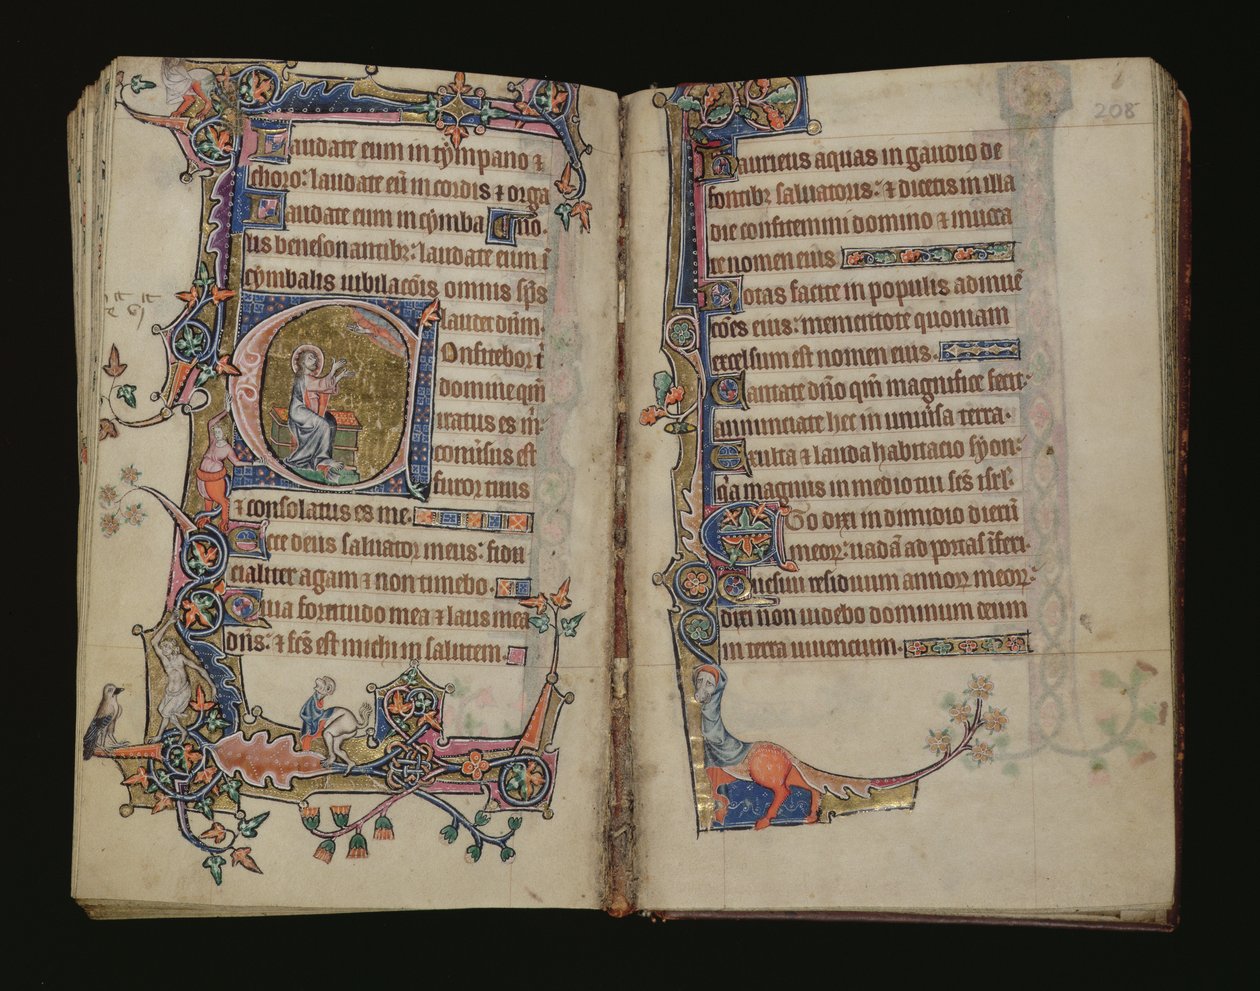 Laudate eum in tympano &
choro: laudate eu in cordis & orga
Laudate eum in cymba no.
lis benesonantibz: laudate eum i
cymbalis iubilacois omnis sps
laudet dnm.
Confitebor t
domine qm
iratus es m:
couersus est
furor tuus
& consolatus es me.
Ecce deus saluator meus: fidu
cialiter agam & non timebo.
Quia fortitudo mea & laus mea
dns: & fcs est michi in salutem.
208
Haurietis aquas in gaudio de
fontibz saluatoris: & dicetis in illa
die confitemini domino & inuoca
te nomen eius.
Notas facite in populis adinue
coes eius: mementote quoniam
excelsum est nomen eius.
Cantate dno qm magnifice fecit:
annunciate hec in uniuersa terra.
Exulta & lauda habitacio syon:
qia magnus in medio tui scs isrl.
Ego dixi in dimidio dieru
meor: uadam ad portas iferi.
Quesiui residuum annor meor:
dixi non uidebo dominum deum
in terra uiuencium.